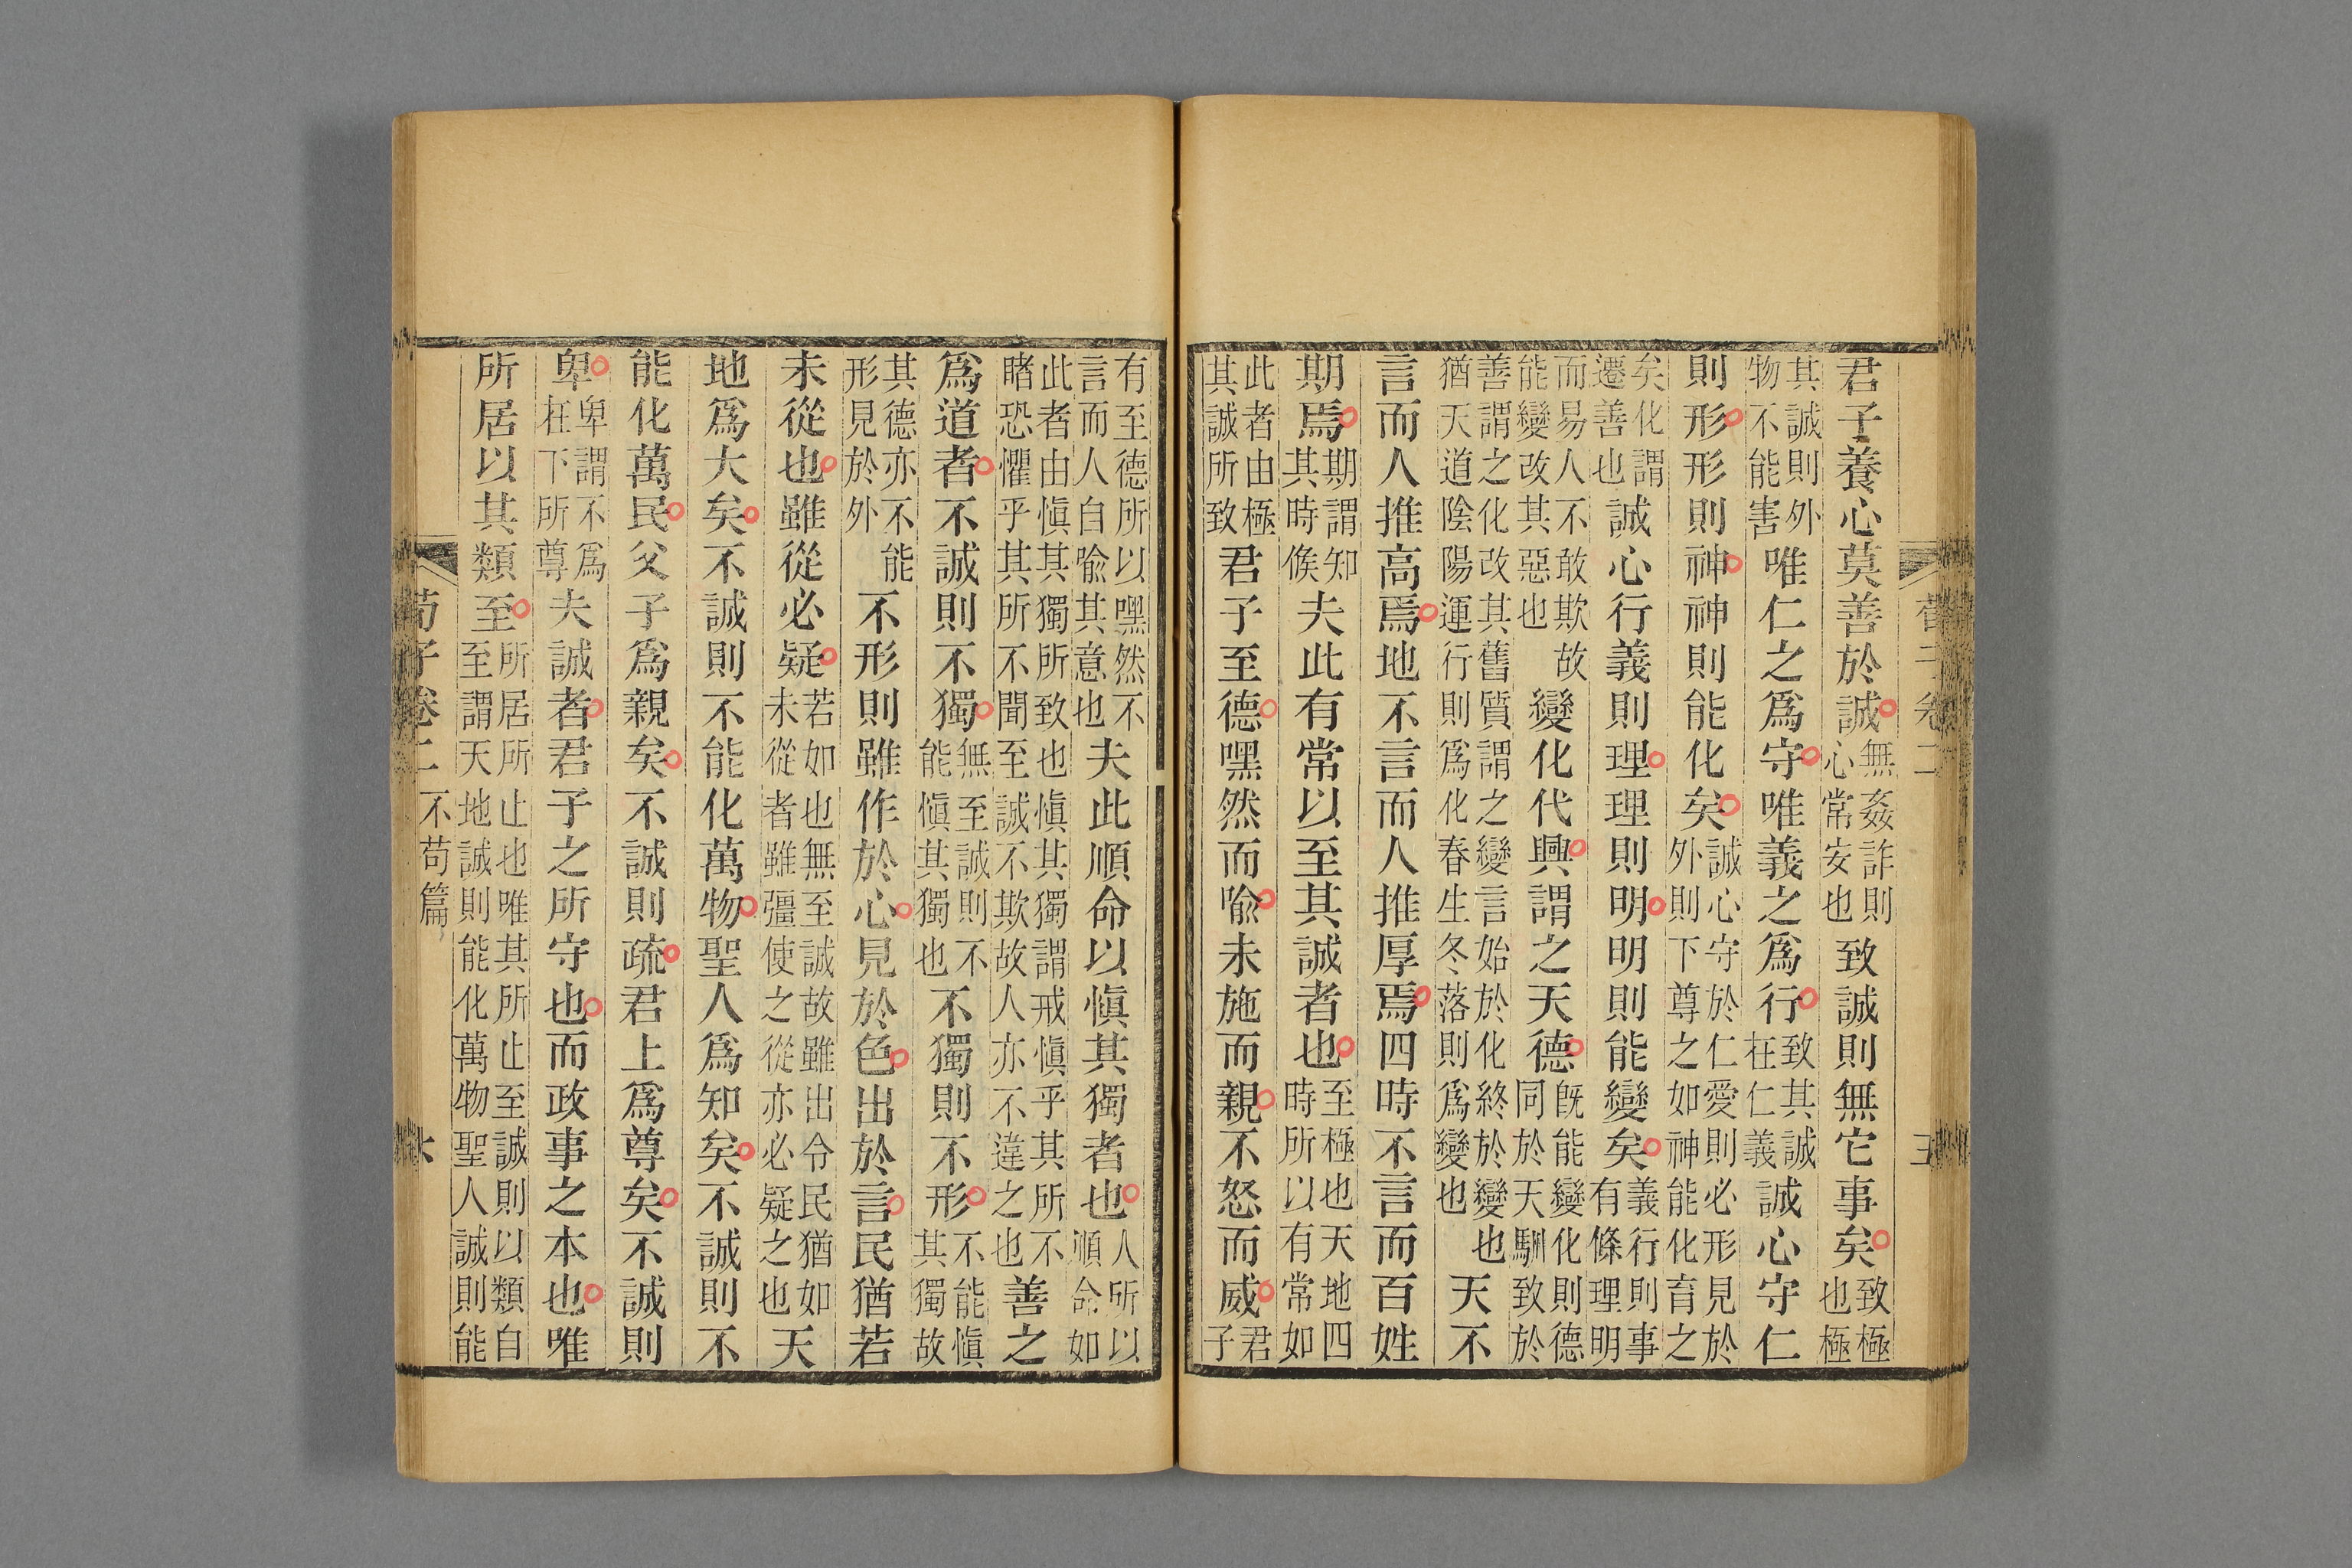 君子養心莫善於誠無姦詐則心常安也致誠則無它事矣致極也極
其誠則外物不能害唯仁之爲守唯義之爲行致其誠在仁義誠心守仁
則形形則神神則能化矣誠心守於仁愛則必形見於外則下尊之如神能化育之
矣化謂遷善也誠心行義則理理則明明則能變矣義行則事有條理明
而易人不敢欺故能變改其惡也變化代興謂之天德既能變化則德同於天馴致於
善謂之化改其舊質謂之變言始於化終於變也猶天道陰陽運行則爲化春生冬落則爲變也天不
言而人推高焉地不言而人推厚焉四時不言而百姓
期焉期謂知其時候夫此有常以至其誠者也至極也天地四時所以有常如
此者由極其誠所致君子至德嘿然而喻未施而親不怒而威君子
有至德所以嘿然不言而人自喻其意也夫此順命以愼其獨者也人所以順命如
此者由愼其獨所致也愼其獨謂戒愼乎其所不睹恐懼乎其所不聞至誠不欺故人亦不違之也善之
爲道者不誠則不獨無至誠則不能愼其獨也不獨則不形不能愼其獨故
其德亦不能形見於外不形則雖作於心見於色出於言民猶若
未從也雖從必疑若如也無至誠故雖出令民猶如未從者雖彊使之從亦必疑之也天
地爲大矣不誠則不能化萬物聖人爲知矣不誠則不
能化萬民父子爲親矣不誠則疏君上爲尊矣不誠則
卑卑謂不爲在下所尊夫誠者君子之所守也而政事之本也唯
所居以其類至所居所止也唯其所止至誠則以類自至謂天地誠則能化萬物聖人誠則能
荀子卷二 不苟篇